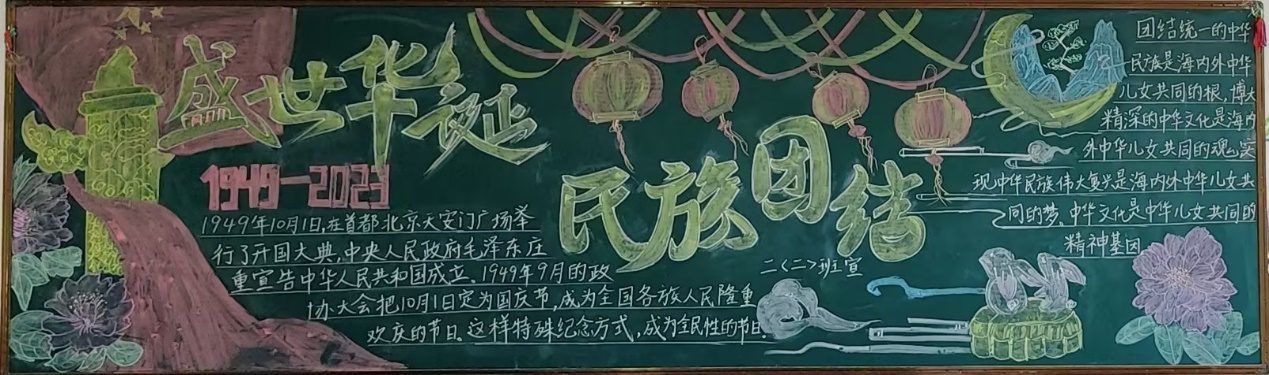 盛世华诞
民族团结
1949-2023
1949年10月1日,在首都北京天安门广场举
行了开国大典,中央人民政府毛泽东庄
重宣告中华人民共和国成立。1949年9月的政
协大会把10月1日定为国庆节,成为全国各族人民隆重
欢庆的节日。这样特殊纪念方式,成为全民性的节日。
二〈二〉班宣
团结统一的中华
民族是海内外中华
儿女共同的根,博大
精深的中华文化是海内
外中华儿女共同的魂,实
现中华民族伟大复兴是海内外中华儿女共
同的梦,中华文化是中华儿女共同的
精神基因